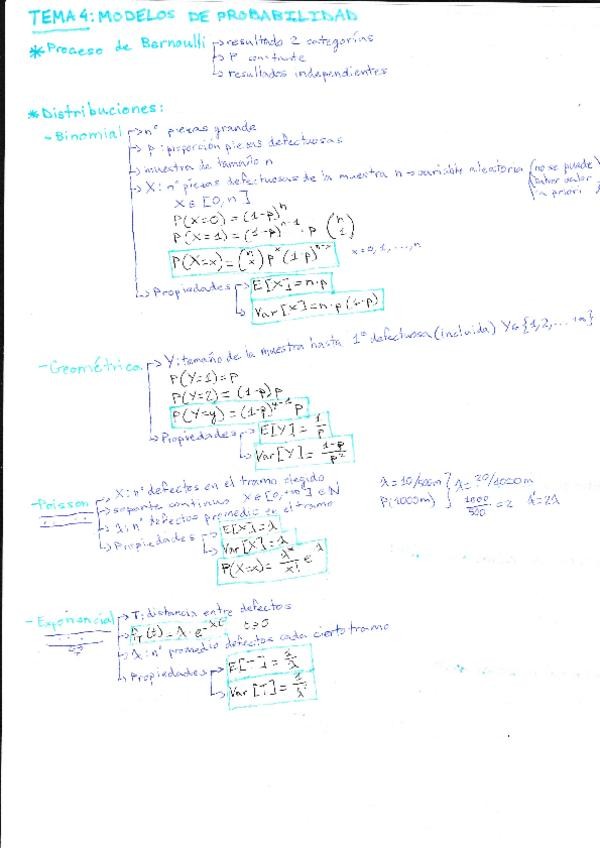 TEMA 4: MODELOS DE PROBABILIDAD
* Proceso de Bernoulli → resultado 2 categorías
→ P constante
→ resultados independientes
* Distribuciones:
- Binomial → nº piezas grande
→ p: proporción piezas defectuosas
→ muestra de tamaño n
→ X: nº piezas defectuosas de la muestra n → variable aleatoria (no se puede saber valor a priori)
X ∈ [0, n]
P(X=0) = (1-p)^n
P(X=1) = (1-p)^{n-1} · p (n 1)
P(X=x) = (n x) p^x (1-p)^{n-x} x=0, 1, ..., n
→ Propiedades → E[X] = n·p
→ Var[X] = n·p (1-p)
- Geométrica → Y: tamaño de la muestra hasta 1ª defectuosa (incluida) Y ∈ {1, 2, ... +∞}
P(Y=1) = p
P(Y=2) = (1-p) p
P(Y=y) = (1-p)^{y-1} p
→ Propiedades → E[Y] = 1/p
→ Var[Y] = 1-p/p²
- Poisson → X: nº defectos en el tramo elegido
→ soporte continuo X ∈ [0, +∞] ∈ N
→ λ: nº defectos promedio en el tramo
→ Propiedades → E[X] = λ
→ Var[X] = λ
P(X=x) = λ^x/x! e^λ
λ = 10/500m } λ = 20/1000m
P(1000m) } 1000/500 = 2 λ' = 2λ
- Exponencial → T: distancia entre defectos
→ f_T(t) = λ · e^{-λt} t>0
→ λ: nº promedio defectos cada cierto tramo
→ Propiedades → E[T] = 1/λ
→ Var[T] = 1/λ²